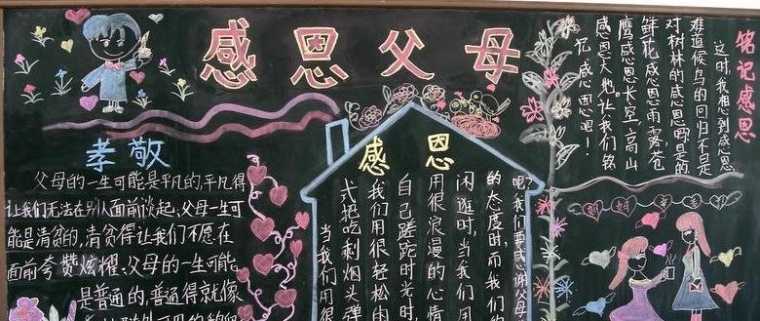 感恩父母
孝敬
父母的一生可能是平凡的,平凡得
让我们无法在别人面前谈起、父母一生可
能是清贫的,清贫得让我们不愿在
面前夸赞炫耀、父母的一生可能
是普通的,普通得就像
感恩
我们要感谢父母
的态度时,而我们的
闲逛时,当我们用
用很浪漫的心情
自己蹉跎时光时,
我们用很轻松的
式把吃剩烟头弹
当我们用很
铭记感恩
这时,我想到感恩,
难道候鸟的回归不是
对树林的感恩吗?是的
鲜花感恩雨露,苍
鹰感恩长空,高山
感恩大地。让我们铭
记感恩吧!